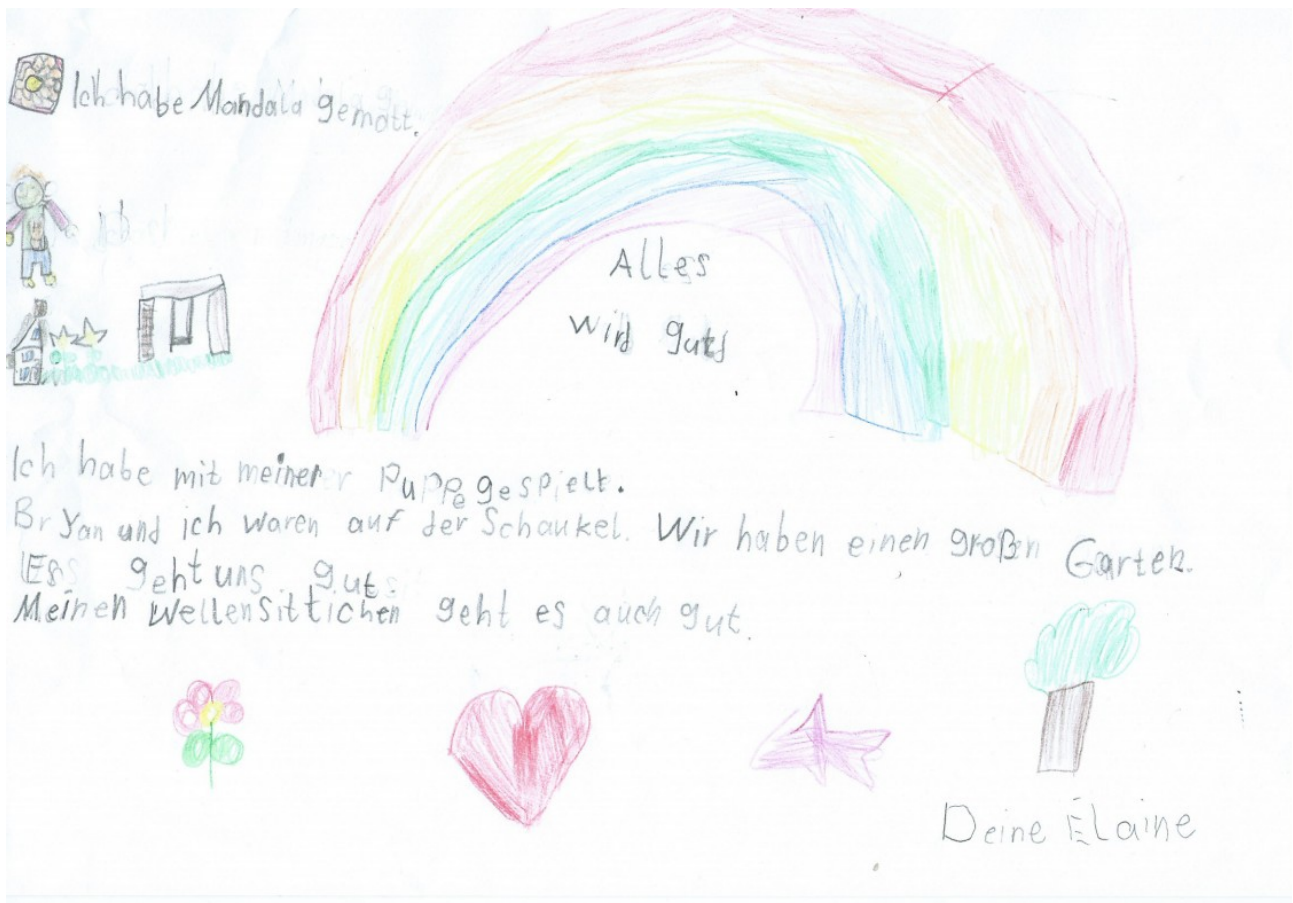 Ich habe Mandala gemalt.
Alles
wird gut
Ich habe mit meiner Puppe gespielt.
Bryan und ich waren auf der Schaukel. Wir haben einen großen Garten.
Es geht uns gut.
Meinen Wellensittichen geht es auch gut.
Deine Elaine